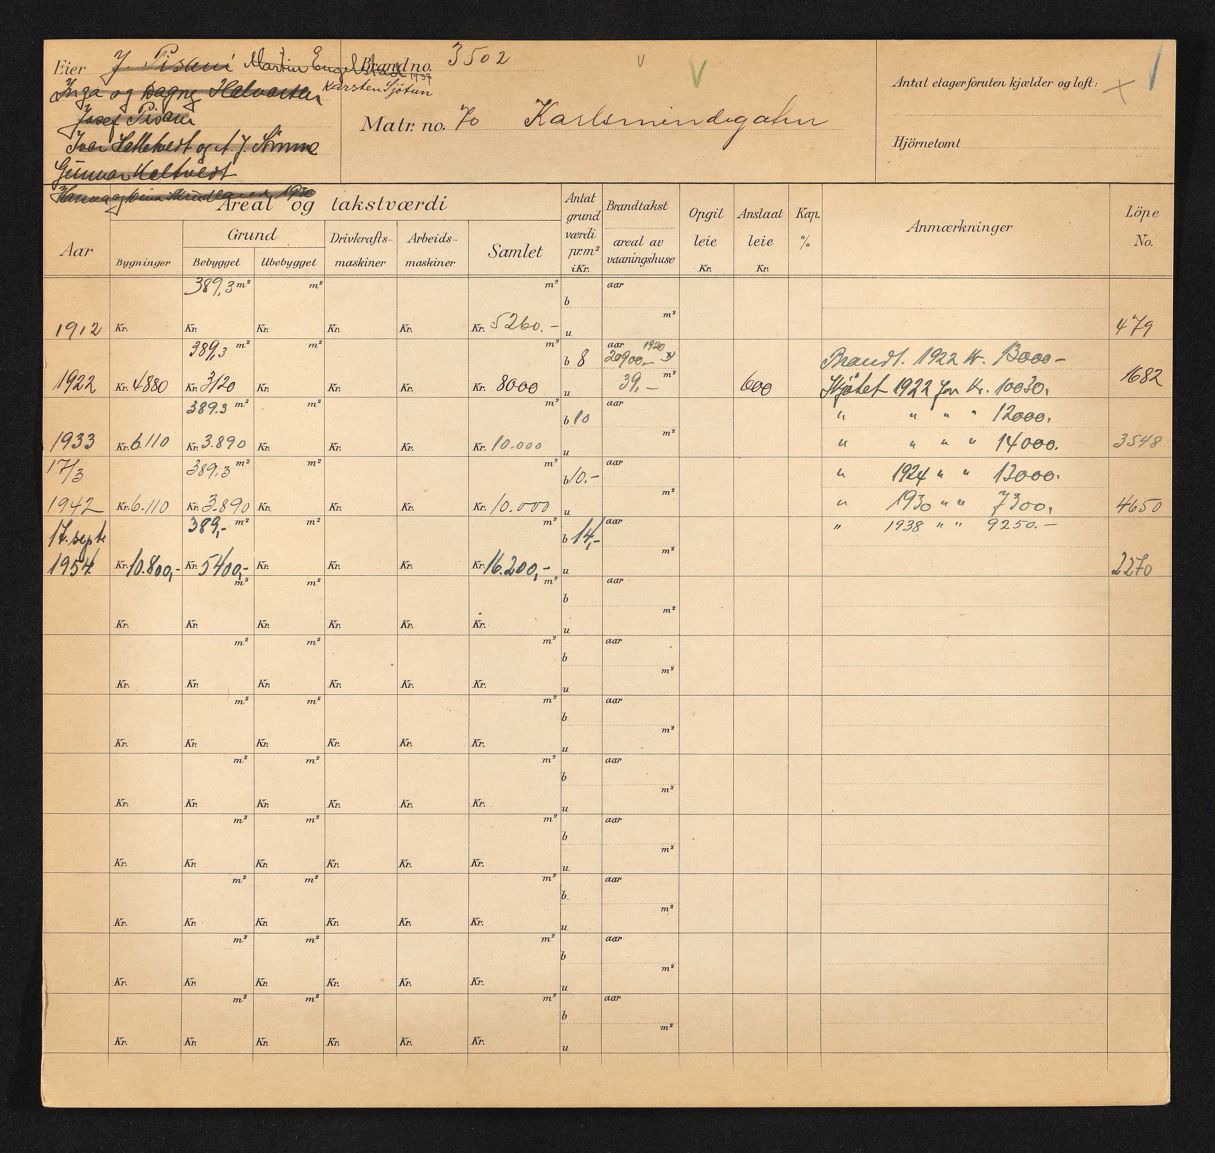 Eier J. Pisani Martin Engelstad 1937
Karsten Sjötun
Inga og Dagny Halvorsen
Josef Pisani
Iver og A. J.
Gunnar
Hanna og 1930
Brand no. 3502
Matr. no. 70 Karlsmindegaten
Antal etager foruten kjælder og loft:
Hjörnetomt
Areal og takstværdi
Aar
Bygninger
Grund
Bebygget Ubebygget
Drivkrafts- maskiner
Arbeids- maskiner
Samlet
Antat grund værdi pr. m² i Kr.
Brandtakst
areal av vaaningshuse
Opgit leie Kr.
Anslaat leie Kr.
Kap. %
Anmærkninger
Löpe No.
389,3 m² m² m² b aar
1912 Kr. Kr. Kr. Kr. Kr. Kr. 5260.- u m² 479
389,3 m² m² m² b 8 aar 1920 20900.- Brandt. 1922 Kr. 13000-
1922 Kr. 4880 Kr. 3120 Kr. Kr. Kr. Kr. 8000 u 39,- m² 600 Kjöbet 1922 for Kr. 10030. 1682
389.3 m² m² m² b 10 aar " " " " 12000.
1933 Kr. 6110 Kr. 3.890 Kr. Kr. Kr. Kr. 10.000 u m² " " " " 14000. 3548
17/3 389.3 m² m² m² b 10.- aar " 1924 " " 13000.
1942 Kr. 6.110 Kr. 3.890 Kr. Kr. Kr. Kr. 10.000 u m² " 1930 " " 7300. 4650
17. sept. 389,- m² m² m² b 14,- aar " 1938 " " 9250.-
1954 Kr. 10.800,- Kr. 5400,- Kr. Kr. Kr. Kr. 16.200,- u m² 2270
m² m² m² b aar
Kr. Kr. Kr. Kr. Kr. Kr. u m²
m² m² m² b aar
Kr. Kr. Kr. Kr. Kr. Kr. u m²
m² m² m² b aar
Kr. Kr. Kr. Kr. Kr. Kr. u m²
m² m² m² b aar
Kr. Kr. Kr. Kr. Kr. Kr. u m²
m² m² m² b aar
Kr. Kr. Kr. Kr. Kr. Kr. u m²
m² m² m² b aar
Kr. Kr. Kr. Kr. Kr. Kr. u m²
m² m² m² b aar
Kr. Kr. Kr. Kr. Kr. Kr. u m²
m² m² m² b aar
Kr. Kr. Kr. Kr. Kr. Kr. u m²